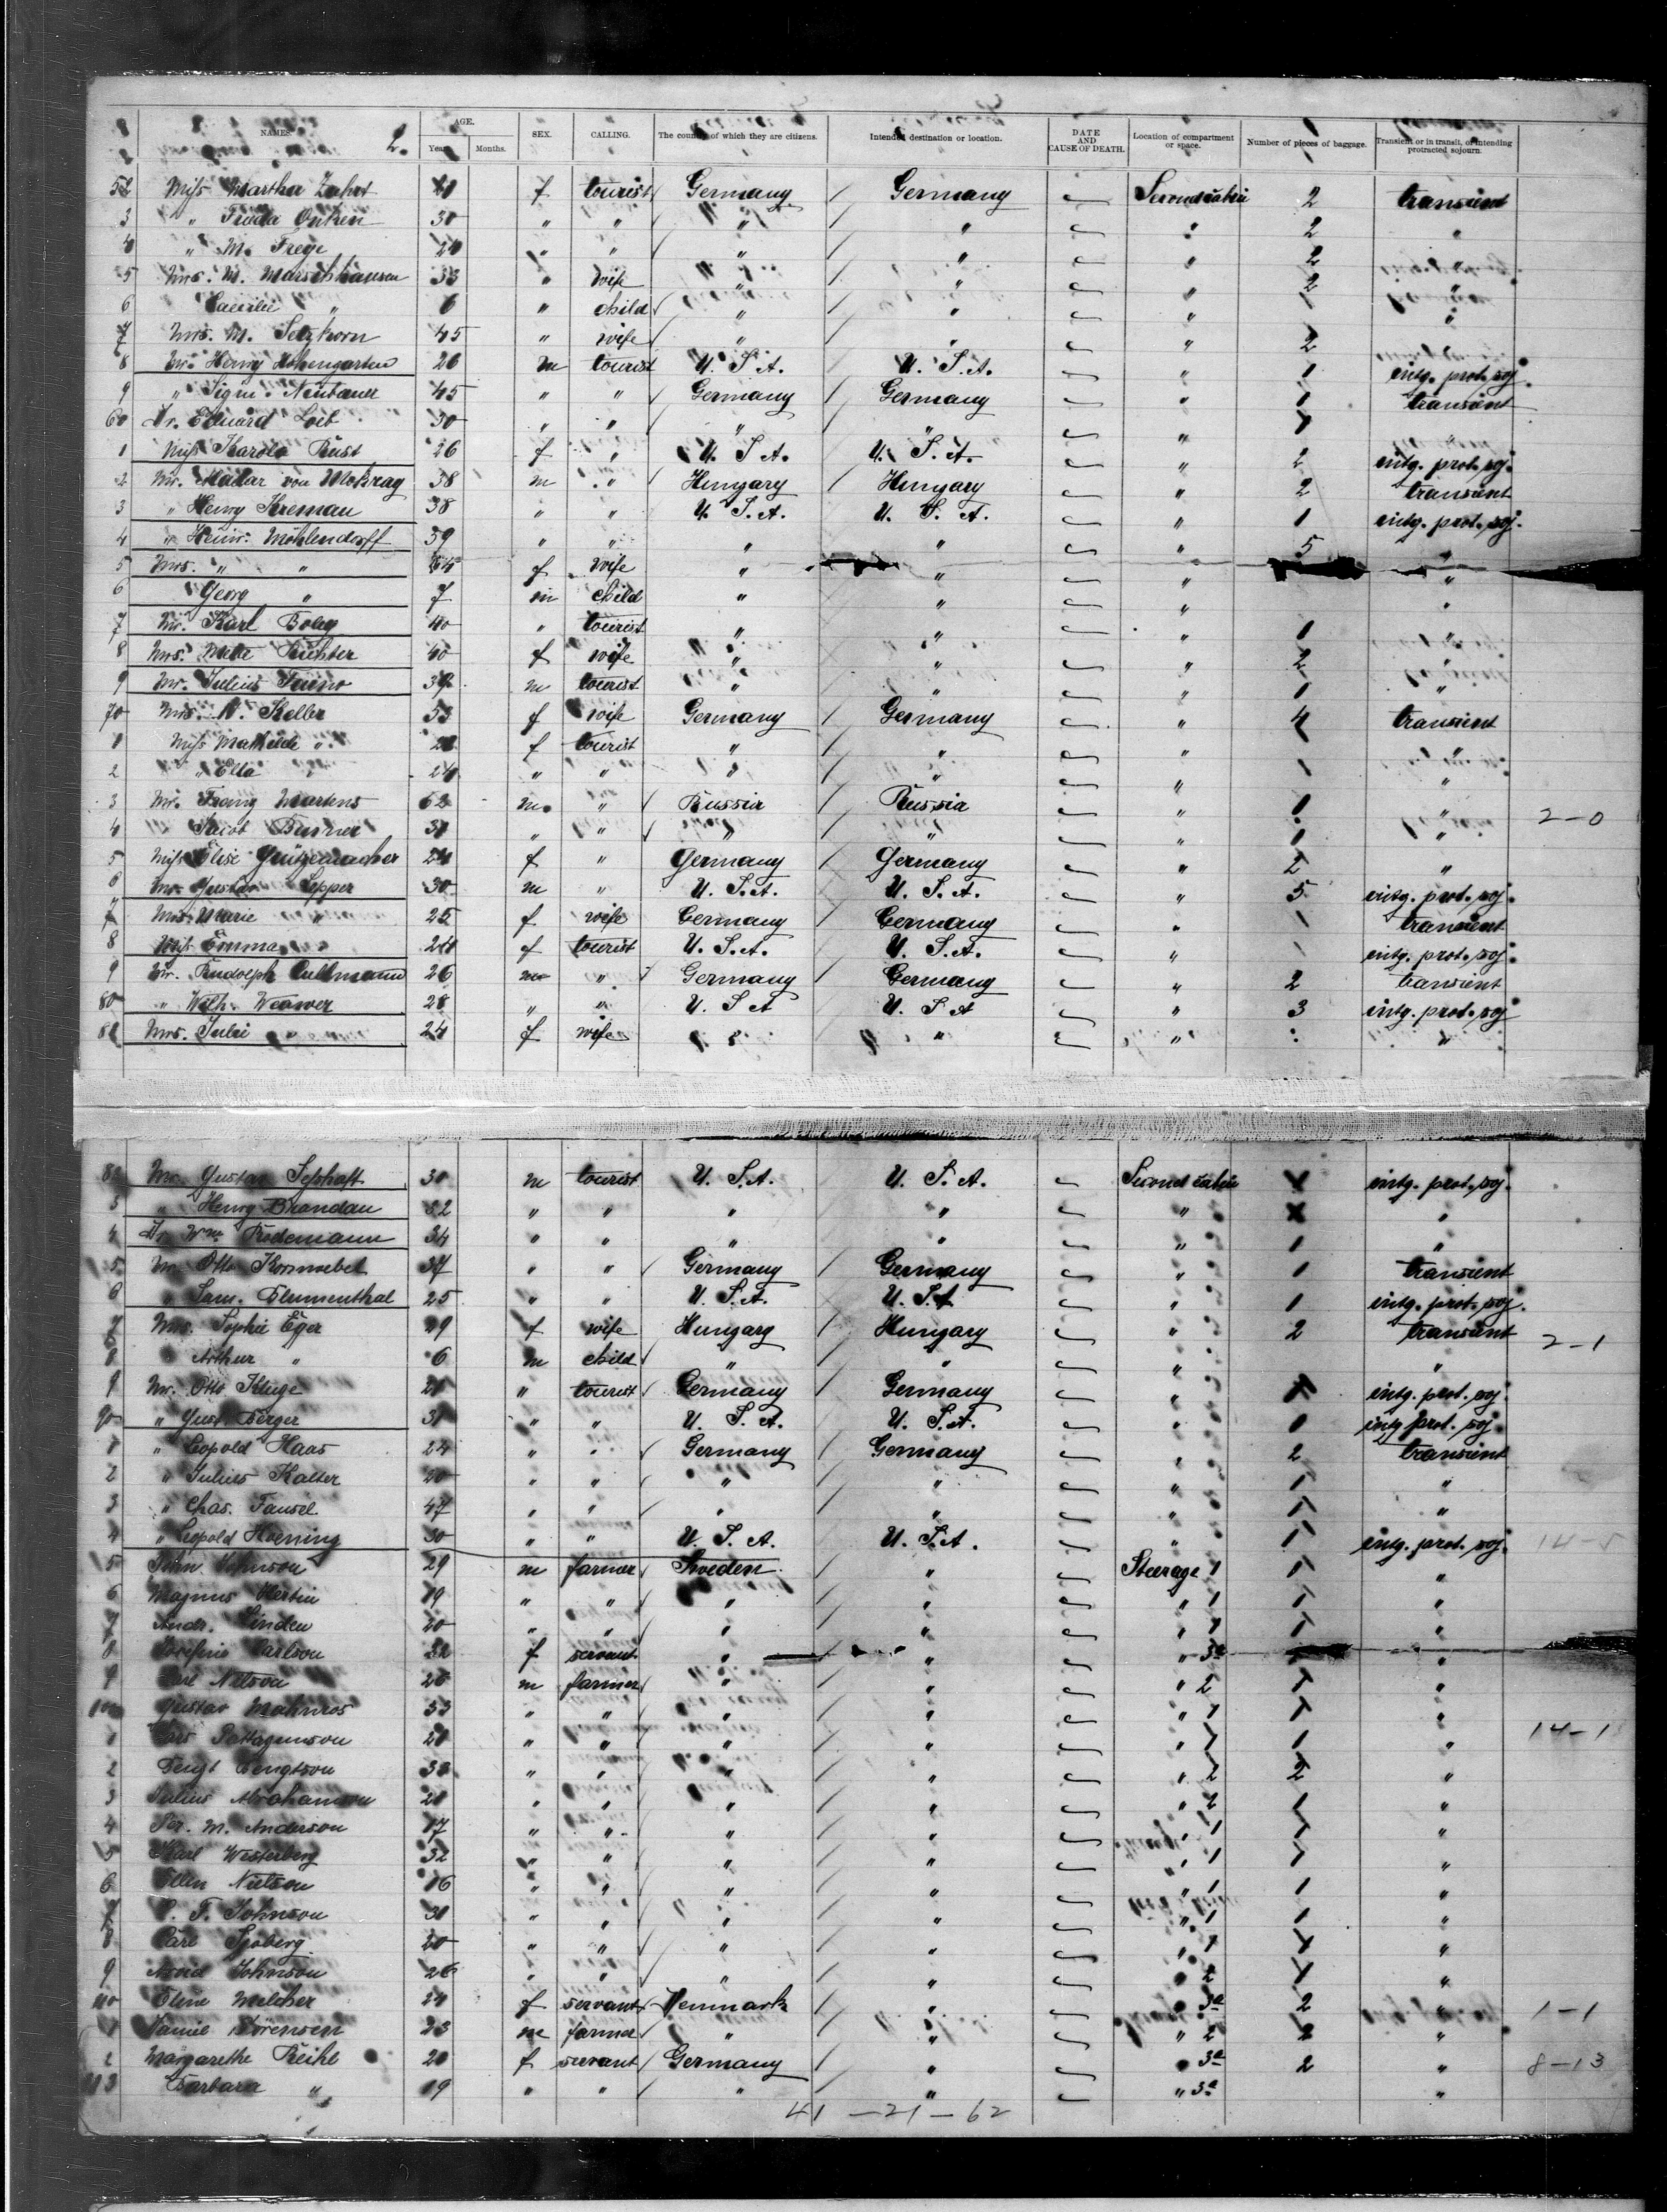 NAMES. 2. AGE. Years. Months. SEX. CALLING. The country of which they are citizens. Intended destination or location. DATE AND CAUSE OF DEATH. Location of compartment or space. Number of pieces of baggage. Transient or in transit, or intending protracted sojourn.
52 Miss Martha f tourist Germany Germany Second cabin 2 transient
3 " Frieda 30 " " " " " 2 "
4 " M. Freye " " " " " 2
5 Mrs. M. Marschhausen 33 " wife " " " 2 "
6 " 6 " child " " " 1 "
7 Mrs. M. Setzkorn 45 " wife " " " 2
8 Mr. Henry Hohengarten 26 m tourist U. S. A. U. S. A. " 1 intg. prot. soj.
9 " Sigm. Neubauer 45 " " Germany Germany " 1 transient
60 Dr. Eduard Loeb 30 " " " " " 1
1 Miss Karola Rust 26 f " U. S. A. U. S. A. " 2 intg. prot. soj.
2 Mr. von 38 m " Hungary Hungary " 2 transient
3 " Henry Kreman 38 " " U. S. A. U. S. A. " 1 intg. prot. soj.
4 " Heinr. Möhlendorff 39 " " " " " 5 "
5 Mrs. " " f wife " " " "
6 Georg " 7 m child " " " "
7 Mr. Karl Boley 40 " tourist " " " 1 "
8 Mrs. Meta Richter 40 f wife " " " 2 "
9 Mr. Julius 39 m tourist " " " 1 "
70 Mrs. N. Keller 53 f wife Germany Germany " 4 transient
1 Miss Mathilde " f tourist " " " 1 "
2 " Ella " " " " " 1 "
3 Mr. Franz Martens 62 m " Russia Russia " 1 " 2-0
4 " Jacob 31 " " " " " 1 "
5 Miss Elise Grützemacher 24 f " Germany Germany " 2 "
6 Mr. Gustav Lepper 30 m " U. S. A. U. S. A. " 5 intg. prot. soj.
7 Mrs. Marie " 25 f wife Germany Germany " 1 transient
8 Miss Emma " f tourist U. S. A. U. S. A. " 1 intg. prot. soj.
9 Mr. Rudolph Cullmann 26 m " Germany Germany " 2 transient
80 " Wilh. Weawer 28 " " U. S. A U. S. A " 3 intg. prot. soj
81 Mrs. Julie " 24 f wife " " "
82 Mr. Gustav 30 m tourist U. S. A. U. S. A. Second cabin intg. prot. soj.
3 " Henry Brandau 52 " " " " " "
4 Dr. Wm. Rodemann 34 " " " " " 1 "
5 Mr. Otto Kornnebel 37 " " Germany Germany " 1 transient
6 " Sam. Blumenthal 25 " " U. S. A. U. S. A " 1 intg. prot. soj.
7 Mrs. Sophie Eger 29 f wife Hungary Hungary " 2 transient 2-1
8 Arthur " 6 m child " " " "
9 Mr. Otto Kluge 21 " tourist Germany Germany " 1 intg. prot. soj.
90 " Gust. Berger 31 " " U. S. A. U. S. A. " 1 intg prot. soj.
1 " Leopold Haas 24 " " Germany Germany " 2 transient
2 " Julius Kalter 20 " " " " " 1 "
3 " Chas. Fausel 47 " " " " " 1 "
4 " Leopold Hoening 30 " " U. S. A. U. S. A. " 1 intg. prot. soj. 14-5
5 John Johnson 29 m farmer Sweden " Steerage 1 1 "
6 Magnus 19 " " " " " 1 1 "
7 Andr. Linden 20 " " " " " 1 1 "
8 Carlson 22 f servant " " " 3a "
9 Carl Nilson 26 m farmer " " " 2 1 "
100 Gustav Malmros 33 " " " " " 1 1 "
1 Lars " " " " " 1 1 " 14-1
2 Bengt Bengtson " " " " " 2 2 "
3 Julius Abrahamson " " " " " 2 1 "
4 Per. M. Anderson 17 " " " " " 1 1 "
5 Karl Westerberg 32 " " " " " 1 1 "
6 Ellen Nielson 16 " " " " " 1 1 "
7 T. Johnson 31 " " " " " 1 1 "
8 Carl Sjoberg 20 " " " " " 1 1 "
9 Arvid Johnson 26 " " " " 2 1 "
110 Eline Melcher f servant Denmark " 3a 2 " 1-1
1 Daniel Sörensen 23 m farmer " " " 2 2 "
2 Margarethe Reihl 20 f servant Germany " 3a 2 " 8-13
113 Barbara " 19 " " " " " 3a "
41 - 21 - 62